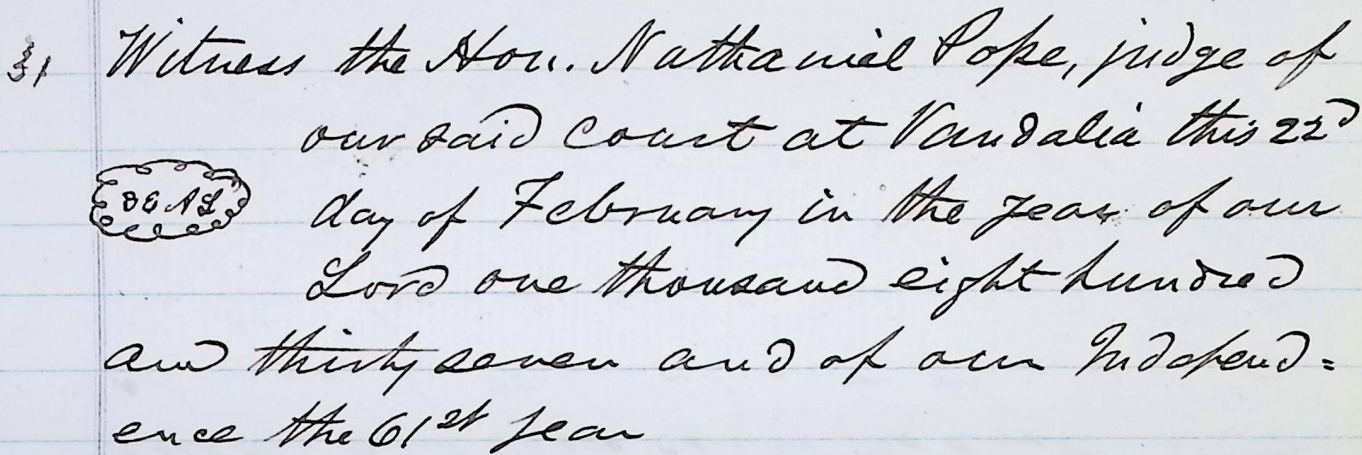 31 Witness the Hon. Nathaniel Pope, judge of
our said Court at Vandalia this 22d
SEAL day of February in the year of our
Lord one thousand eight hundred
and thirty seven and of our Independ=
ence the 61st year